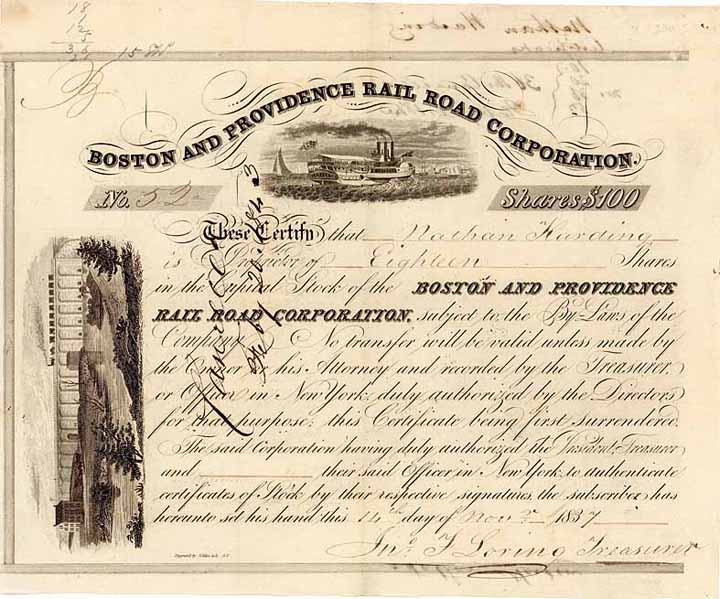 18
6
12
3
15
BOSTON AND PROVIDENCE RAIL ROAD CORPORATION.
No. 52
Shares $100
These Certify that Nathan Harding
is Proprietor of Eighteen Shares
in the Capital Stock of the BOSTON AND PROVIDENCE
RAIL ROAD CORPORATION, subject to the By-Laws of the
Company. No transfer will be valid unless made by
the Owner or his Attorney and recorded by the Treasurer
or Officer in New York, duly authorized by the Directors
for that purpose; this Certificate being first surrendered.
The said Corporation having duly authorized the President, Treasurer
and their said Officer in New York to authenticate
certificates of Stock by their respective signatures, the subscriber has
hereunto set his hand this 14th day of Novr 1837
Jno. F Loring Treasurer
Cancelled
Feby 20. 1843
Nathan Harding